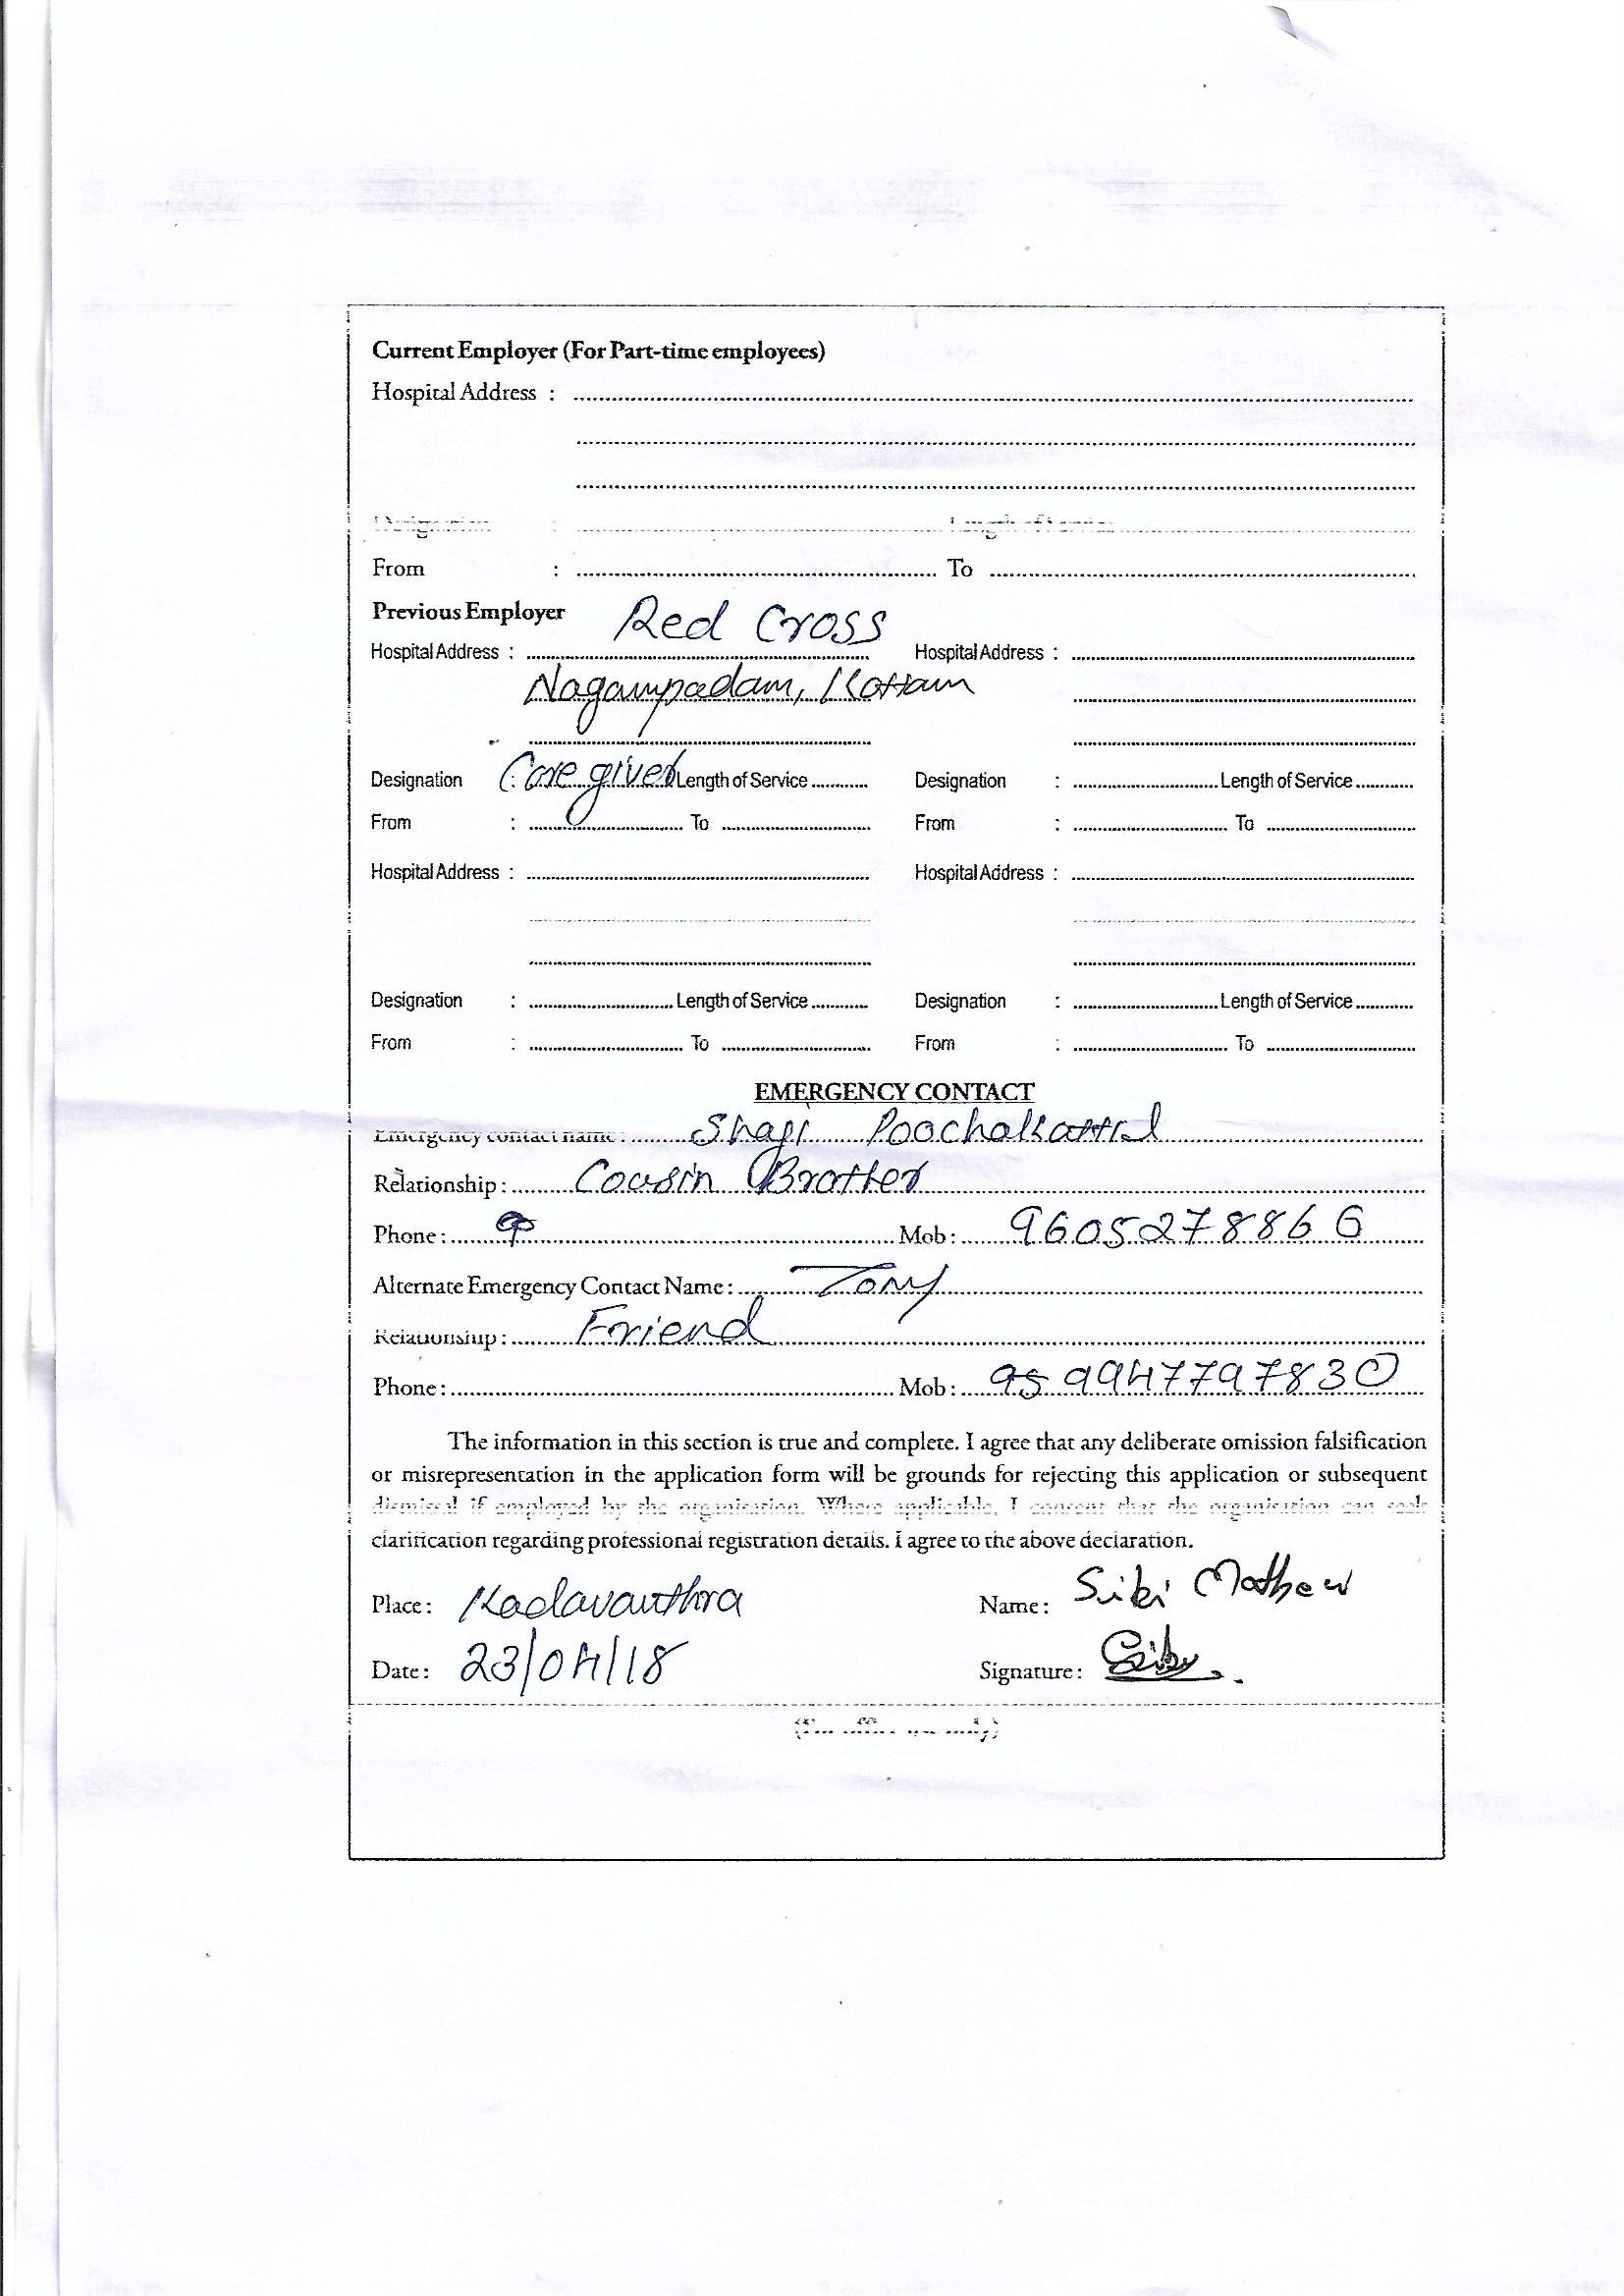 Current Employer (For Part-time employees)
Hospital Address : ........
........
........
Designation : ........ Length of Service ........
From : ........ To ........
Previous Employer Red Cross
Hospital Address : ........ Hospital Address : ........
Nagampadam, Kottam
Designation : Care giver Length of Service ........ Designation : ........ Length of Service ........
From : ........ To ........ From : ........ To ........
Hospital Address : ........ Hospital Address : ........
........ ........
........ ........
Designation : ........ Length of Service ........ Designation : ........ Length of Service ........
From : ........ To ........ From : ........ To ........
EMERGENCY CONTACT
Emergency contact name : Shaji
Relationship : Cousin Brother
Phone : ........ Mob : 9605278866
Alternate Emergency Contact Name : Tony
Relationship : Friend
Phone : ........ Mob : 9947797830
The information in this section is true and complete. I agree that any deliberate omission falsification
or misrepresentation in the application form will be grounds for rejecting this application or subsequent
dismissal if employed by the organisation. Where applicable, I consent that the organisation can seek
clarification regarding professional registration details. I agree to the above declaration.
Place : Kadavanthra Name : Mathew
Date : 23/04/18 Signature :
(For office use only)